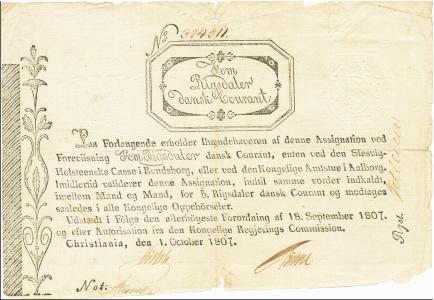 No
Fem
Rigsdaler
dansk Courant
Paa Forlangende erholder Ihændehaveren af denne Assignation ved
Foreviisning Fem Rigsdaler dansk Courant, enten ved den Slesvig-
Holsteenske Casse i Rendsborg, eller ved den Kongelige Amtstue i Aalborg.
Imidlertid validerer denne Assignation, indtil samme vorder indkaldt,
imellem Mand og Mand, for 5. Rigsdaler dansk Courant og modtages
saaledes i alle Kongelige Oppebörseler.
Udstædt i Følge den allerhöigste Forordning af 18. September 1807.
og efter Autorisation fra den Kongelige Regjerings Commission.
Christiania, den 1. October 1807.
Not: